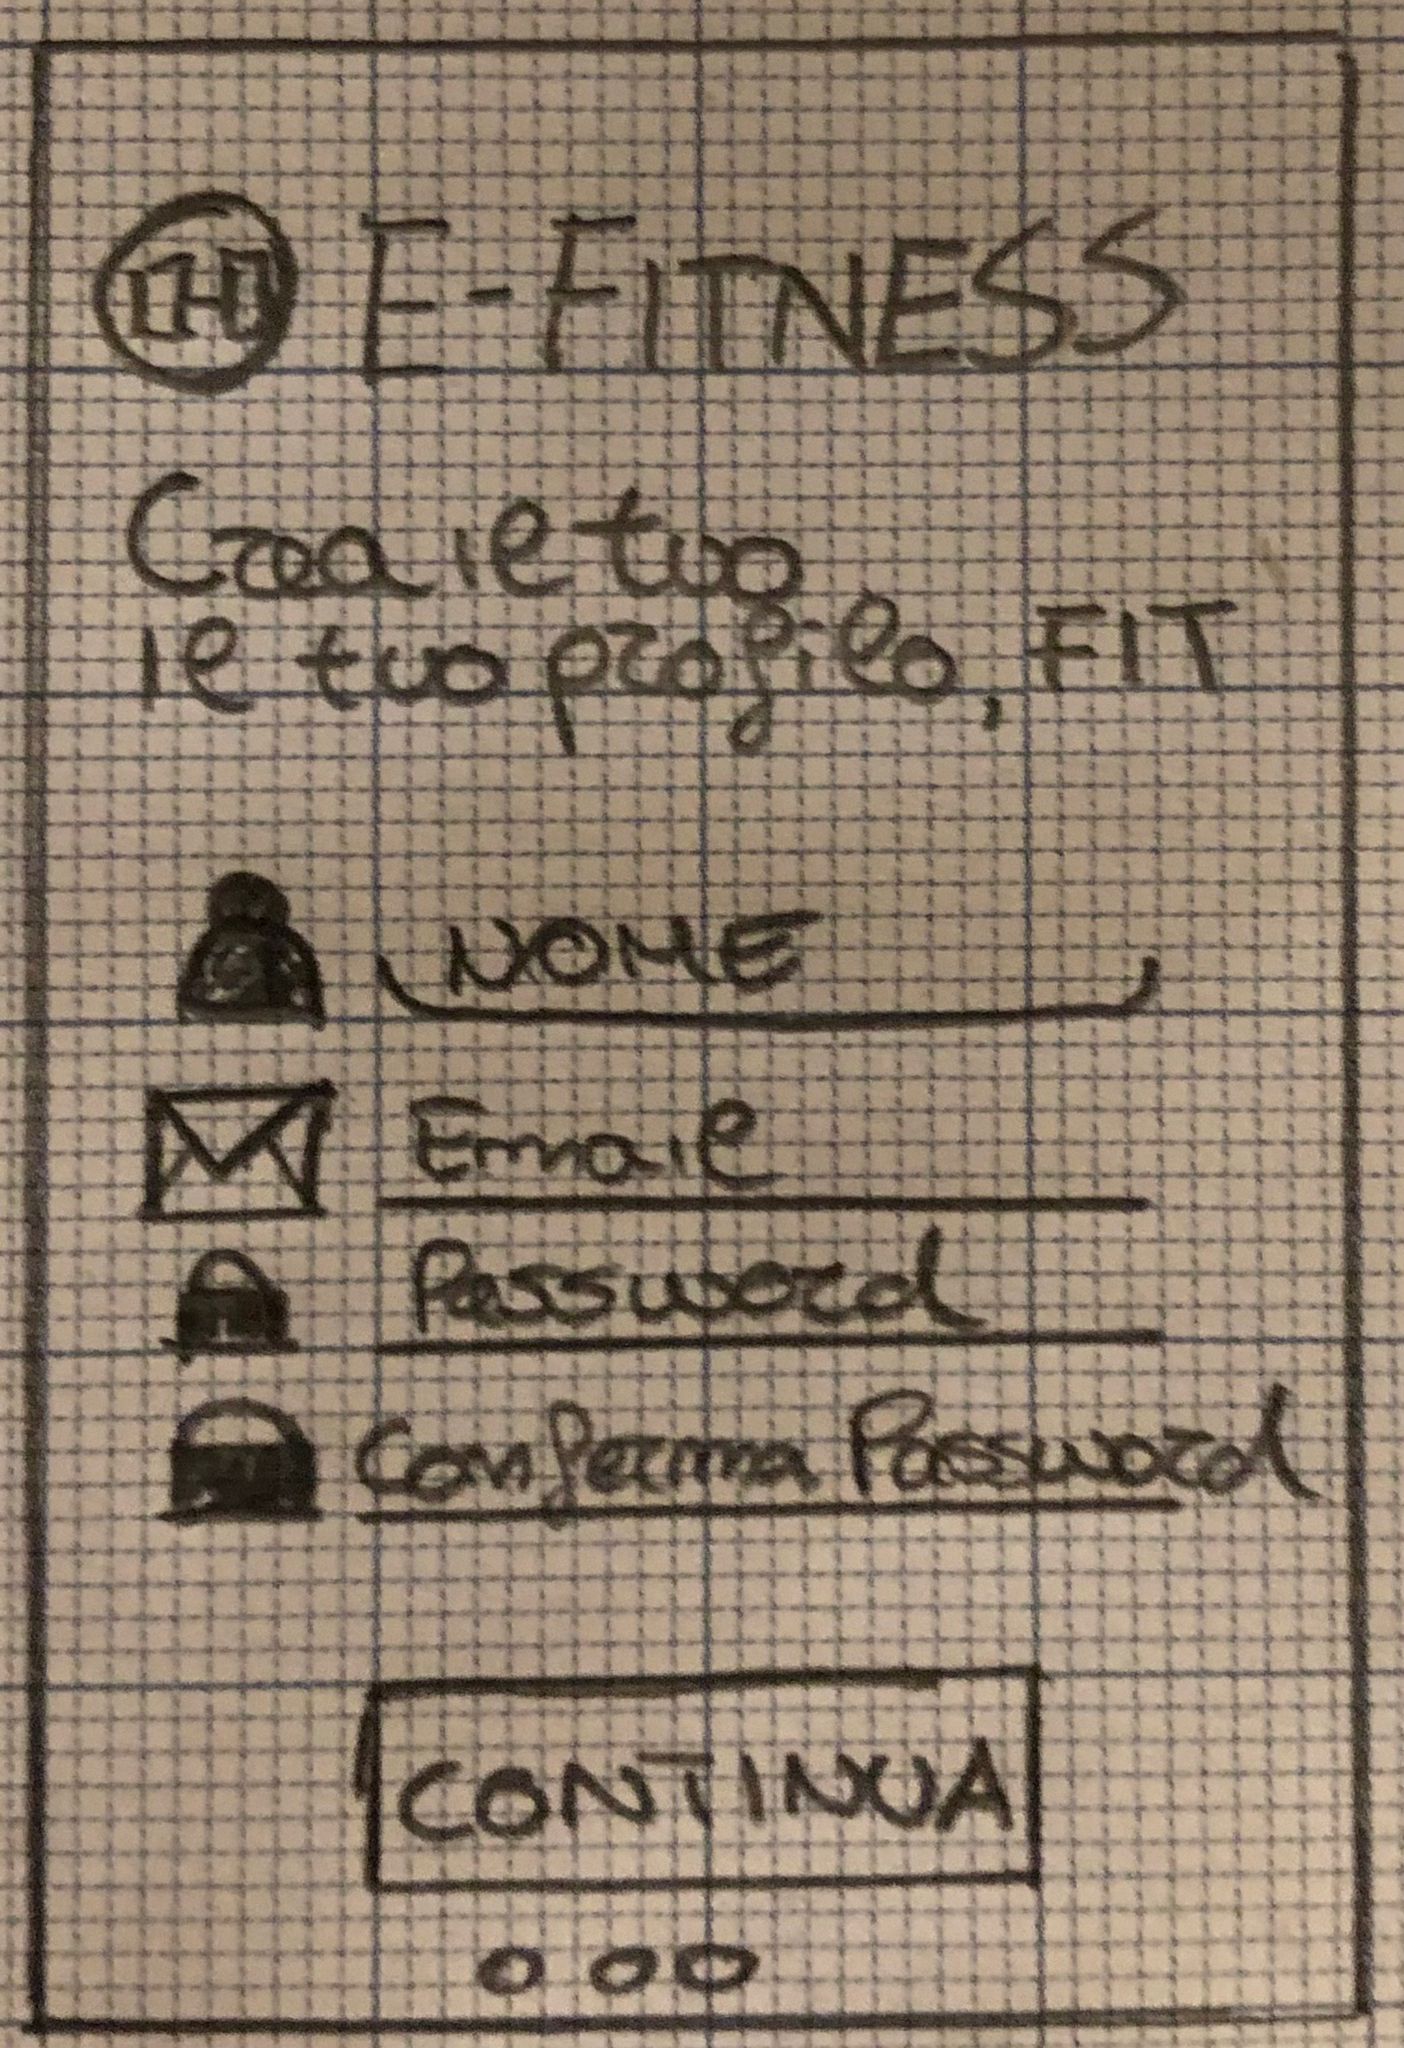 E-FITNESS
Crea il tuo
il tuo profilo, FIT
NOME
Email
Password
Conferma Password
CONTINUA